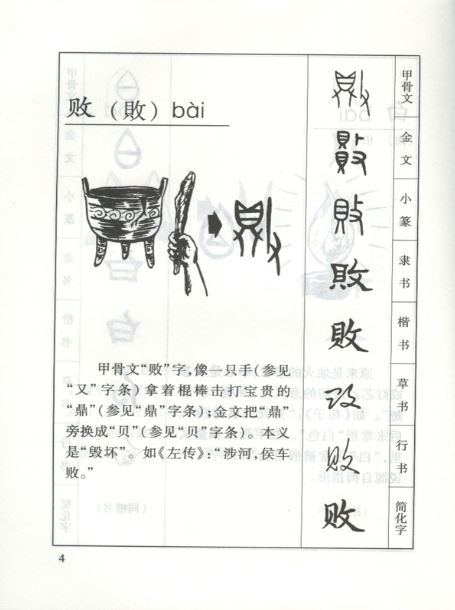 败(敗)bài
甲骨文“败”字,像一只手(参见
“又”字条)拿着棍棒击打宝贵的
“鼎”(参见“鼎”字条);金文把“鼎”
旁换成“贝”(参见“贝”字条)。本义
是“毁坏”。如《左传》:“涉河,侯车
败。”
甲骨文
金文
小篆
隶书
楷书
草书
行书
简化字
敗
敗
败
败
4